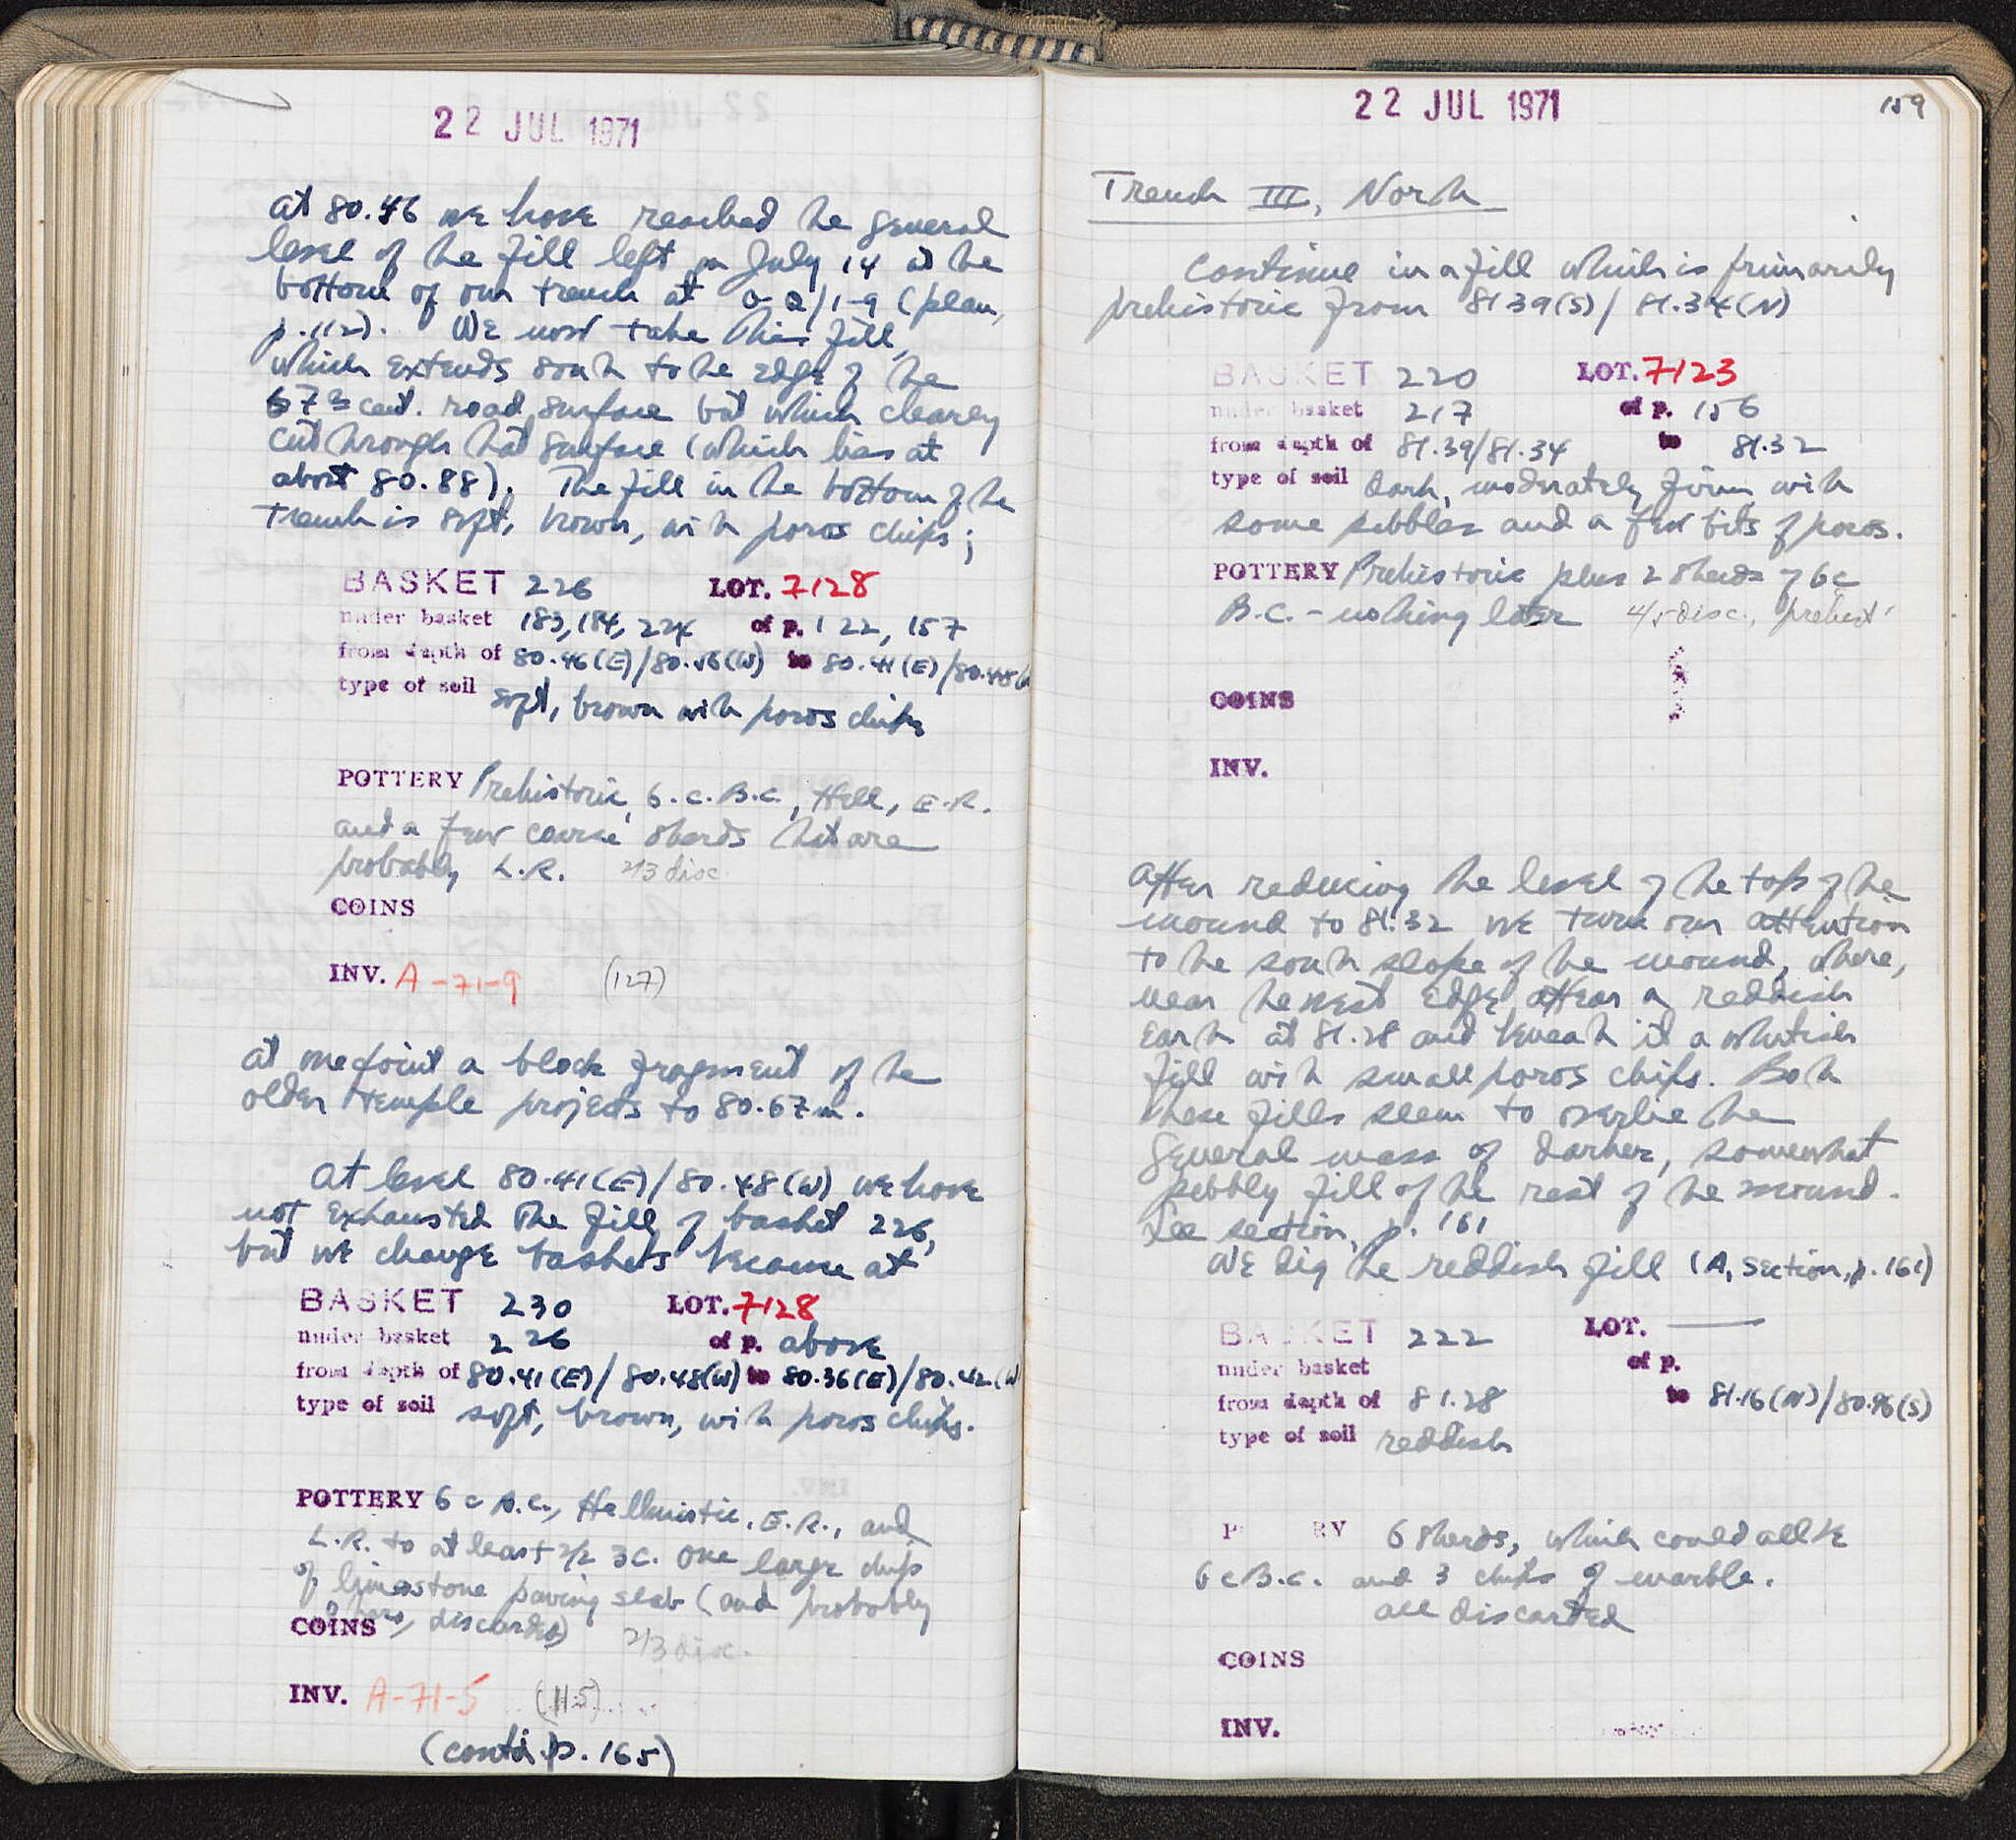 22 JUL 1971
at 80.46 we have reached the general
level of the fill left on July 14 at the
bottom of our trench at /1-9 (plan,
p. 112). We now take this fill,
which extends south to the edge of the
cent. road surface but which clearly
cut through that surface (which lies at
about 80.88). The fill in the bottom of the
trench is soft, brown, with poros chips;
BASKET 226 LOT. 7128
under basket 183, 184, 224 of p. 122, 157
from depth of 80.46(E)/80.56(W) to 80.41(E)/80.48(
type of soil soft, brown with poros chips
POTTERY Prehistoric, 6.c.B.C., Hell., E.R.
and a few coarse sherds that are
probably L.R. 2/3 disc.
COINS
INV. A-71-9 (127)
at one point a block fragment of the
older temple projects to 80.67 m.
at level 80.41(E)/80.48(W) we have
not exhausted the fill of basket 226,
but we change baskets because at
BASKET 230 LOT. 7128
under basket 226 of p. above
from depth of 80.41(E)/80.48(W) to 80.36(E)/80.42(W
type of soil soft, brown, with poros chips.
POTTERY 6 c B.C., Hellenistic, E.R., and
L.R. to at least 2/2 3c. One large chip
of limestone paving slab (and probably
discarded) 2/3 disc.
COINS
INV. A-71-5 (115)
(contd. p. 165)
22 JUL 1971
159
Trench III, North
Continue in a fill which is primarily
prehistoric from 81.39(S)/81.34(N)
BASKET 220 LOT. 7123
under basket 217 of p. 156
from depth of 81.39/81.34 to 81.32
type of soil dark, moderately firm with
some pebbles and a few bits of poros.
POTTERY Prehistoric plus 2 sherds of 6c
B.C. - nothing later 4/5 disc., prehist.
COINS
INV.
After reducing the level of the top of the
mound to 81.32 we turn our attention
to the south slope of the mound, where,
near the west edge, appear a reddish
earth at 81.28 and beneath it a whitish
fill with small poros chips. Both
these fills seem to overlie the
general mass of darker, somewhat
pebbly fill of the rest of the mound.
See section, p. 161
We dig the reddish fill (A, section, p. 161)
BASKET 222 LOT. —
under basket of p.
from depth of 81.28 to 81.16(N)/80.96(S)
type of soil reddish
P RY 6 sherds, which could all be
6 c B.C. and 3 chips of marble.
all discarded
COINS
INV.